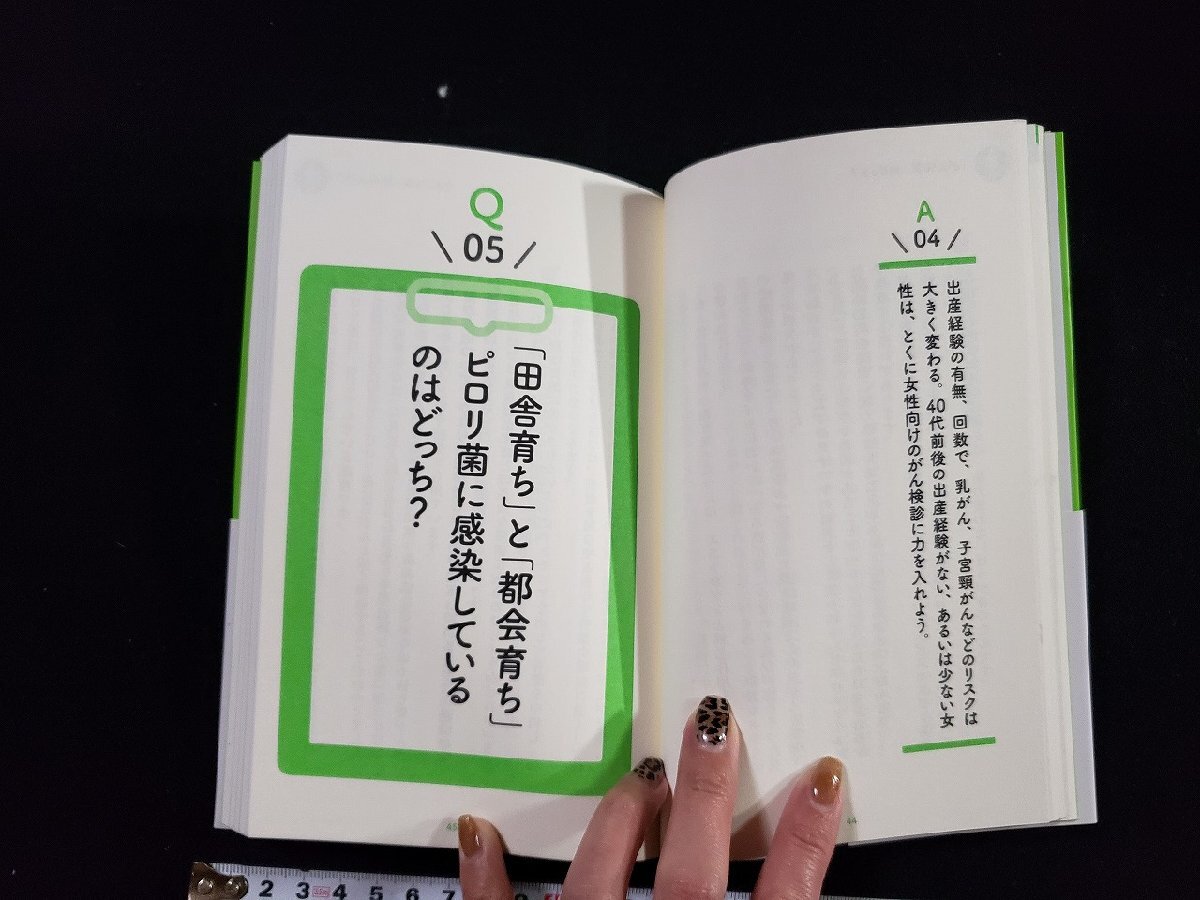 A
04
出産経験の有無、回数で、乳がん、子宮頸がんなどのリスクは
大きく変わる。40代前後の出産経験がない、あるいは少ない女
性は、とくに女性向けのがん検診に力を入れよう。
44
Q
05
「田舎育ち」と「都会育ち」
ピロリ菌に感染している
のはどっち?
45
2 3 4 5 6 7